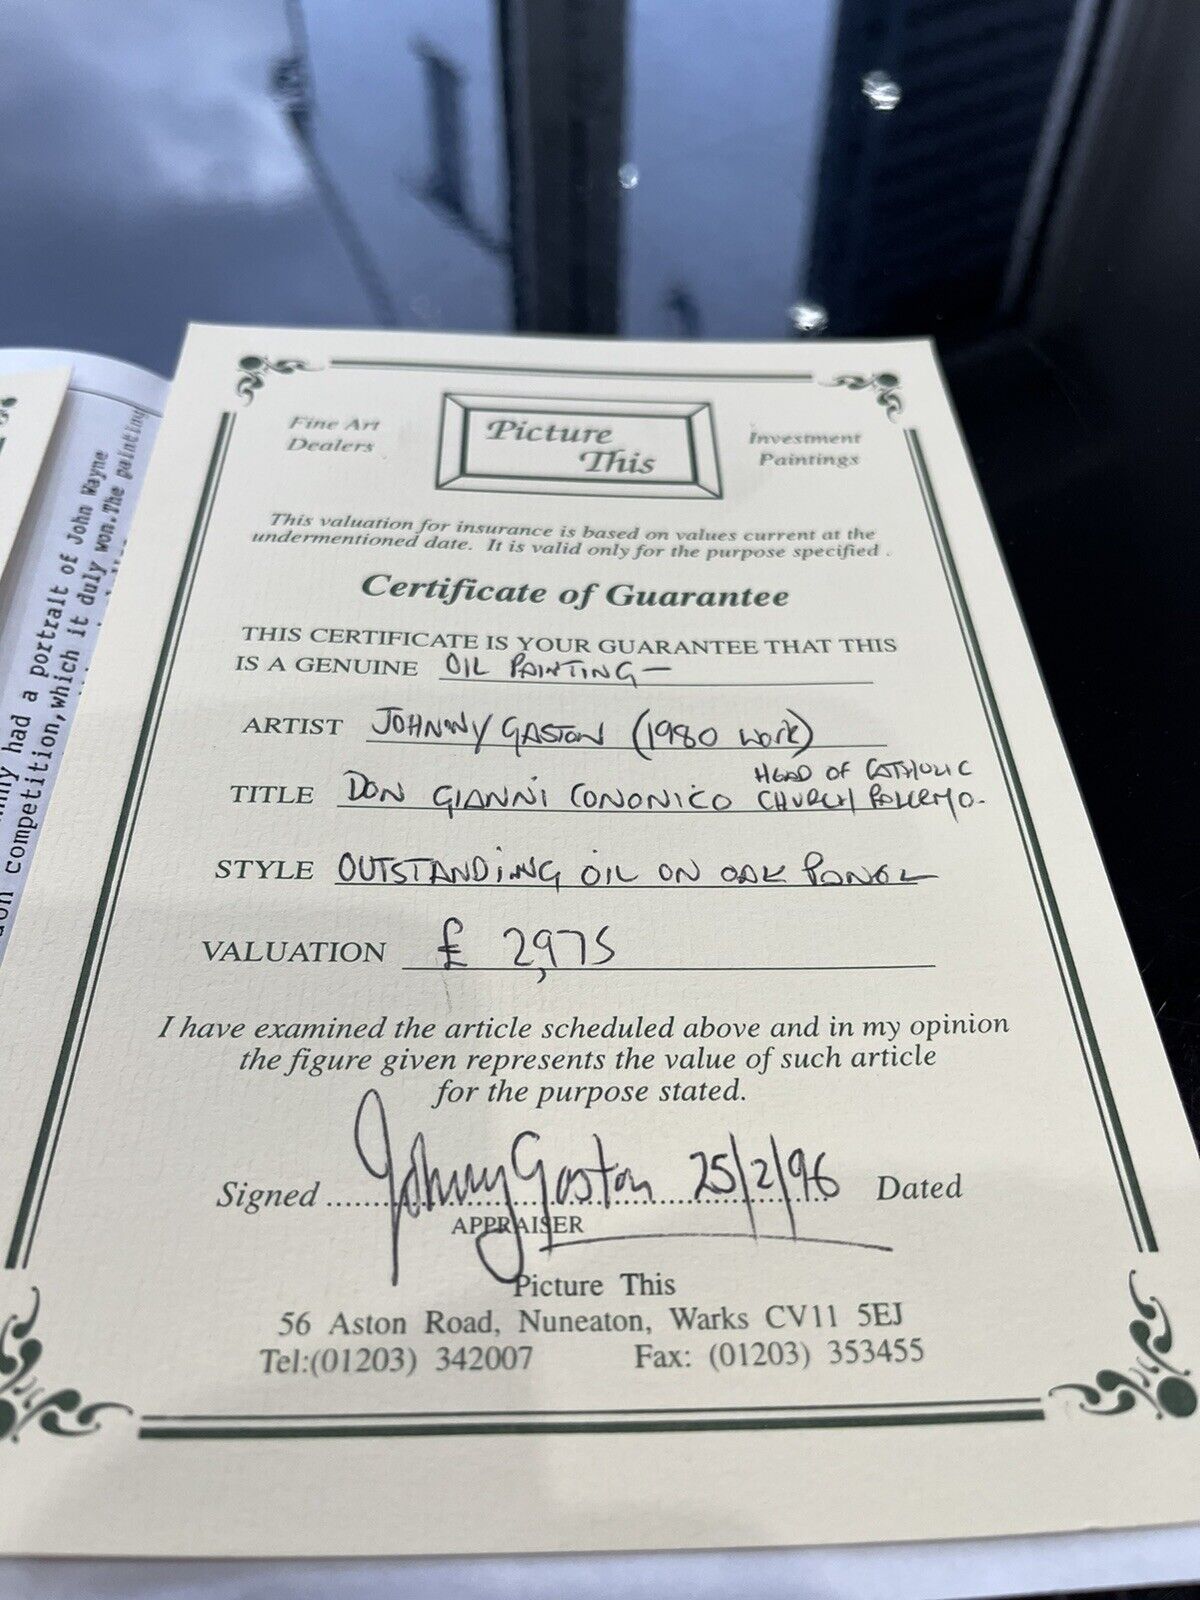 Fine Art
Dealers
Picture
This
Investment
Paintings
This valuation for insurance is based on values current at the
undermentioned date. It is valid only for the purpose specified.
Certificate of Guarantee
THIS CERTIFICATE IS YOUR GUARANTEE THAT THIS
IS A GENUINE OIL PAINTING —
ARTIST JOHNNY GASTON (1980 WORK)
HEAD OF CATHOLIC
TITLE DON GIANNI CONONICO CHURCH PALERMO.
STYLE OUTSTANDING OIL ON OAK PANEL
VALUATION £ 2,975
I have examined the article scheduled above and in my opinion
the figure given represents the value of such article
for the purpose stated.
Signed Johnny Gaston 25/2/96 Dated
APPRAISER
Picture This
56 Aston Road, Nuneaton, Warks CV11 5EJ
Tel:(01203) 342007 Fax: (01203) 353455
had a portrait of John Wayne
competition,which it duly won.The painting